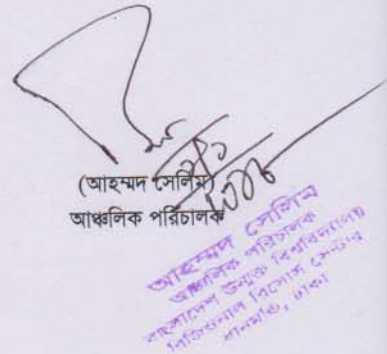 (আহম্মদ সেলিম)
আঞ্চলিক পরিচালক
আহম্মদ সেলিম
আঞ্চলিক পরিচালক
বাংলাদেশ উন্মুক্ত বিশ্ববিদ্যালয়
রিজিওনাল রিসোর্স সেন্টার
ধানমন্ডি, ঢাকা